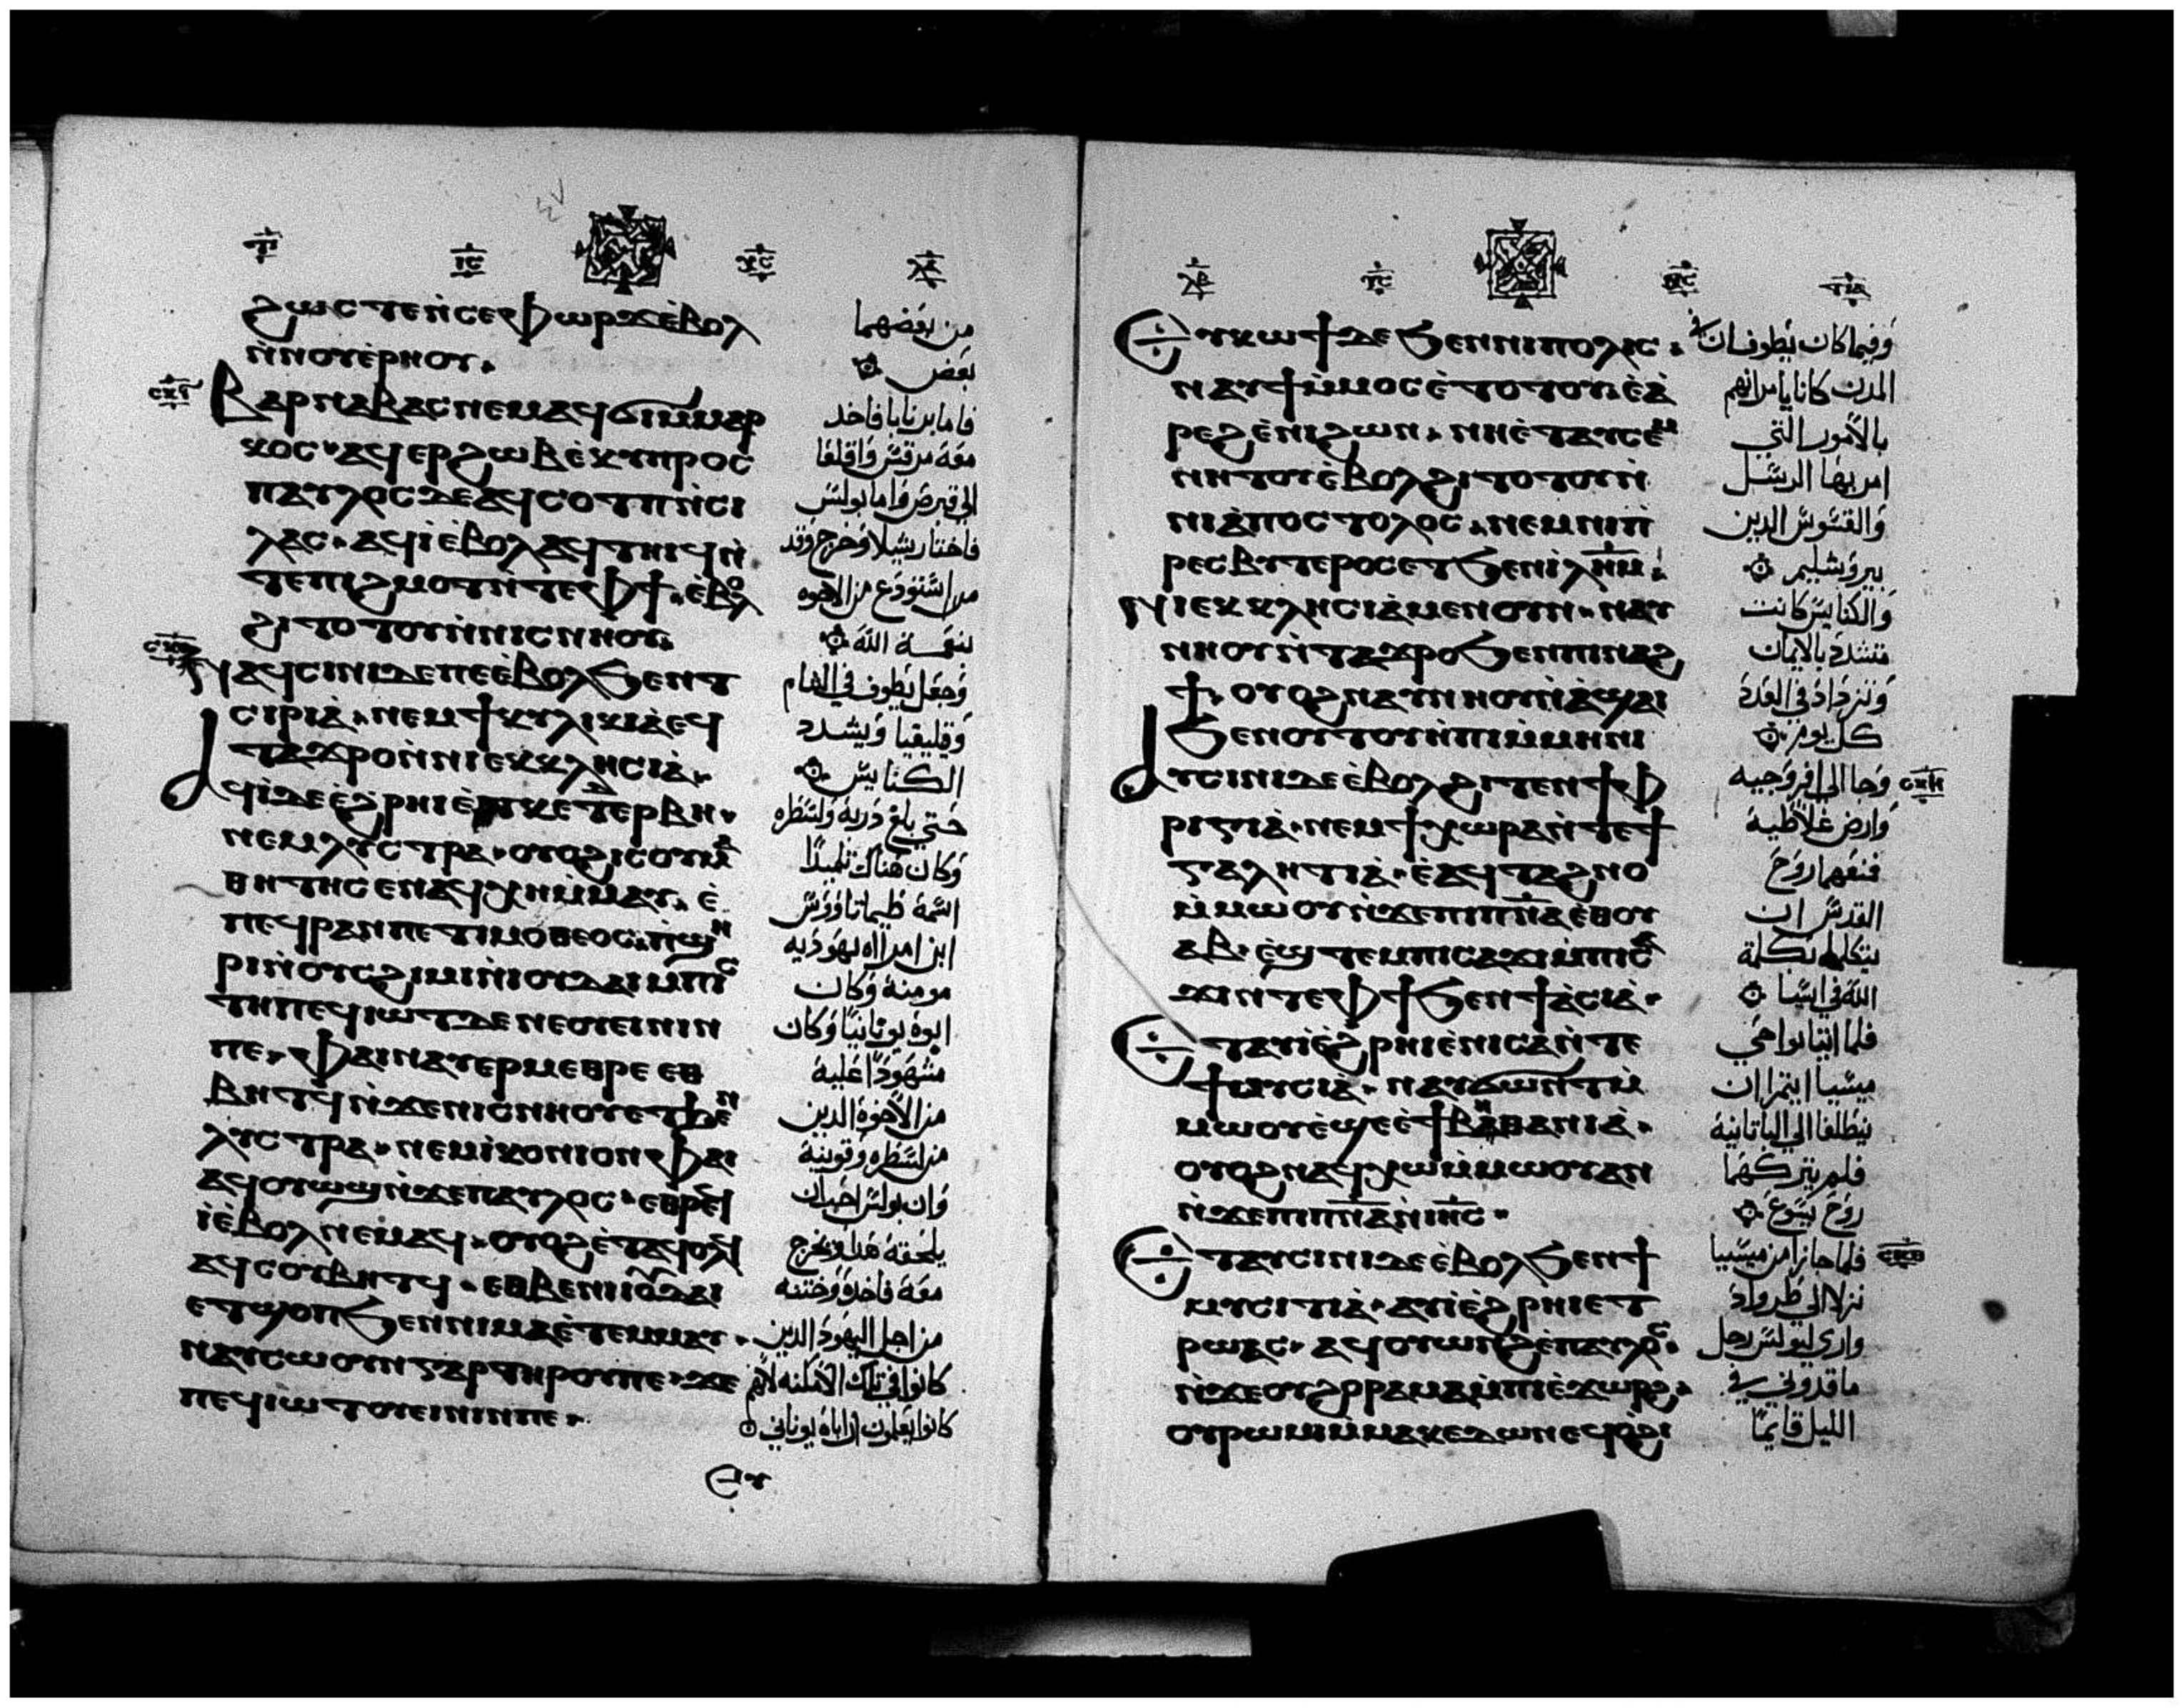 ϩⲱⲥ ⲧⲉⲛ̀ⲥⲉⲫⲱⲣϫⲉ̀ⲃⲟⲗ
ⲛ̀ⲛⲟⲩⲉ̀ⲣⲏⲟⲩ.
ⲃⲁⲣⲛⲁⲃⲁⲥ ⲛⲉⲙ ⲁϥϭⲓⲙ̀ⲙⲁⲣ
ⲕⲟⲥ ⲁϥⲉⲣϩⲱⲃ ⲉ̀ⲕⲩⲡⲣⲟⲥ
ⲡⲁⲩⲗⲟⲥ ⲇⲉ ⲁϥⲥⲟⲧⲡ ⲛ̀ⲥⲓ
ⲗⲁⲥ. ⲁϥⲓ̀ ⲉ̀ⲃⲟⲗ ⲁϥⲧⲏⲓϥ ⲛ̀
ⲧⲉⲡⲓϩⲙⲟⲧ ⲛ̀ⲧⲉⲫϯ. ⲉ̀ⲃⲟⲗ
ϩⲓⲧⲟⲧⲟⲩ ⲛ̀ⲛⲓⲥⲛⲏⲟⲩ.
ⲛⲁϥⲥⲓⲛⲓ ⲇⲉ ⲡⲉ ⲉ̀ⲃⲟⲗ ϧⲉⲛ ⲧ
ⲥⲓⲣⲓⲁ̀. ⲛⲉⲙ ϯⲕⲩⲗⲓⲕⲓⲁ̀ ⲉϥ
ⲧⲁϫⲣⲟ ⲛ̀ⲛⲓⲉⲕⲕⲗⲏⲥⲓⲁ̀.
ⲁϥⲓ̀ ⲇⲉ ⲉ̀ϩⲣⲏⲓ ⲉ̀ ⲕⲉ ⲧⲉⲣⲃⲏ.
ⲛⲉⲙ ⲗⲩⲥⲧⲣⲁ. ⲟⲩⲟϩ ⲓⲥ ⲟⲩⲙⲁ
ⲑⲏⲧⲏⲥ ⲉⲛⲁϥⲭⲏ ⲙ̀ⲙⲁⲩ. ⲉ̀
ⲡⲉϥⲣⲁⲛ ⲡⲉ ⲧⲓⲙⲟ̀ⲑⲉⲟⲥ. ⲡ̀ϣⲏ
ⲣⲓ ⲛ̀ⲟⲩⲥϩⲓⲙⲓ ⲛ̀ⲓⲟⲩⲇⲁⲓ ⲙ̀ⲡⲓⲥ
ⲧⲏ ⲡⲉϥⲓⲱⲧ ⲇⲉ ⲛⲉ ⲟⲩⲉⲓⲛⲓⲛ
ⲡⲉ. ⲫⲁⲓ ⲛⲁⲩⲉⲣⲙⲉⲑⲣⲉ ⲉⲑ
ⲃⲏⲧϥ ⲛ̀ϫⲉⲛⲓⲥ̀ⲛⲏⲟⲩ ⲉⲧϧⲉⲛ
ⲗⲩⲥⲧⲣⲁ. ⲛⲉⲙ ⲓ̀ⲕⲟⲛⲓⲟⲛ ⲫⲁⲓ
ⲁϥⲟⲩⲱϣ ⲛ̀ϫⲉⲡⲁⲩⲗⲟⲥ. ⲉⲑⲣⲉϥ
ⲓ̀ ⲉ̀ⲃⲟⲗ ⲛⲉⲙⲁϥ. ⲟⲩⲟϩ ⲉ̀ⲧⲁϥⲟⲗϥ
ⲁϥⲥⲟⲩⲃⲏⲧϥ. ⲉⲑⲃⲉ ⲛⲓⲓⲟⲩⲇⲁⲓ
ⲉⲧϣⲟⲡ ϧⲉⲛ ⲛⲓⲙⲁ ⲉ̀ⲧⲉⲙⲙⲁⲩ.
ⲛⲁⲩⲥⲱⲟⲩⲛ ⲅⲁⲣ ⲧⲏⲣⲟⲩ ⲡⲉ. ϫⲉ
ⲡⲉϥⲓⲱⲧ ⲟⲩⲉⲓⲛⲓⲛ ⲡⲉ.
ⲉⲩ
من بعضهما
بعض
فاما برنابا فاخد
معه مرقس واقلعا
الى قبرص واما بولس
فاختار شيلا وخرج وقد
استودع من الاخوه
نعمة الله
وجعل يطوف في الشام
وقليقيا ويشدد
الكنايس
حتي بلغ دربه ولسطره
وكان هناك تلميدًا
اسمه طيماتاوس
ابن امراه يهوديه
مومنة وكان
ابوه يونانيًا وكان
مشهودًا عليه
من الاخوة الدين
من لسطره وقونية
وان بولس احب ان
يلحقه هدا ويخرج
معه فاخده وختنه
من اجل اليهود الدين
كانوا في تلك الامكنه لانهم
كانوا يعلمون ان اباه يوناني
ⲉⲩⲕⲱϯ ⲇⲉ ϧⲉⲛ ⲛⲓⲡⲟⲗⲓⲥ.
ⲛⲁⲩϯ ⲙ̀ⲙⲟⲥ ⲉ̀ⲧⲟⲧⲟⲩ. ⲉ̀ⲁ̀
ⲣⲉϩ ⲉ̀ⲛⲓϩⲱⲛ. ⲛⲏ ⲉ̀ⲧⲁⲩⲥⲉⲙ
ⲛⲏⲧⲟⲩ ⲉ̀ⲃⲟⲗ ϩⲓⲧⲟⲧⲟⲩ ⲛ̀
ⲛⲓⲁ̀ⲡⲟⲥⲧⲟⲗⲟⲥ. ⲛⲉⲙ ⲛⲓⲡ̀
ⲣⲉⲥⲃⲩⲧⲉⲣⲟⲥ ⲉⲧϧⲉⲛ ⲓ̀ⲗⲏⲙ.
ⲛⲓⲉⲕⲕⲗⲏⲥⲓⲁ̀ ⲙⲉⲛ ⲟⲩⲛ. ⲛⲁⲩ
ⲛⲏⲟⲩ ⲛ̀ⲧⲁϫⲣⲟ ϧⲉⲛ ⲡⲓⲛⲁϩ
ϯ. ⲟⲩⲟϩ ⲛⲁⲩⲛⲏⲟⲩ ⲛ̀ⲁ̀ϣⲁⲓ
ϧⲉⲛ ⲟⲩⲧⲟⲩ ⲛ̀ⲡⲓ ⲙ̀ⲙⲏⲛⲓ
ⲁⲩⲥⲓⲛⲓ ⲇⲉ ⲉ̀ⲃⲟⲗ ϩⲓⲧⲉⲛ ϯⲫ
ⲣⲓⲅⲓⲁ̀. ⲛⲉⲙ ϯⲭⲱⲣⲁ ⲛ̀ⲧⲉϯ
ⲅⲁⲗⲏⲧⲓⲁ̀. ⲉ̀ⲁϥⲧⲁϩⲛⲟ
ⲙ̀ⲙⲱⲟⲩ ⲛ̀ϫⲉⲡⲓⲡⲛⲁ ⲉ̀ⲑⲟⲩ
ⲁⲃ. ⲉ̀ϣⲧⲉⲙⲡⲓⲥⲁϫⲓ ⲙ̀ⲡⲓⲥⲁ
ϫⲓ ⲛ̀ⲧⲉⲫϯ ϧⲉⲛ ϯⲁ̀ⲥⲓⲁ̀.
ⲉⲧⲁⲩⲓ̀ ⲉ̀ϩⲣⲏⲓ ⲉ̀ⲛⲓⲥⲁ ⲛ̀ⲧⲉ
ϯⲙⲩⲥⲓⲁ̀. ⲛⲁⲩϭⲱⲛⲧ ⲙ̀
ⲙⲱⲟⲩ ⲉ̀ϣⲉ ⲉ̀ϯⲃⲁⲑⲁⲛⲓⲁ̀.
ⲟⲩⲟϩ ⲛⲁϥⲭⲱ ⲙ̀ⲙⲱⲟⲩ ⲁⲛ
ⲛ̀ϫⲉⲡⲓⲡⲛⲁ ⲛ̀ⲓⲏⲥ.
ⲉⲧⲁⲩⲥⲓⲛⲓ ⲇⲉ ⲉ̀ⲃⲟⲗ ϧⲉⲛ ϯ
ⲙⲩⲥⲓⲧⲓⲁ̀. ⲁⲩⲓ̀ ⲉ̀ϩⲣⲏⲓ ⲉⲧ
ⲣⲱⲁⲥ. ⲁϥⲟⲩⲱⲛϩ ⲉ̀ⲡⲁⲩⲗⲟⲥ.
ⲛ̀ϫⲉⲟⲩϩⲟⲣⲁⲙⲁ ⲙ̀ⲡⲓⲉ̀ϫⲱⲣϩ.
ⲟⲩⲣⲱⲙⲓ ⲙ̀ⲙⲁⲕⲉⲇⲱⲛ ⲉϥⲟ̀ϩⲓ
وفيما كان يطوفان في
المدن كانا يامرانهم
بالأمور التي
امر بها الرسل
والقسوس الدين
بيروشليم
والكنايس كانت
تتشدد بالايمان
وتزداد في العدد
كل يوم
وجا الى افروجيه
وارض غلاطية
فمنعهما روح
القدس ان
يتكلما بكلمة
الله في اسيا
فلما اتيا نواحي
ميسيا ايتمرا ان
ينطلقا الي الباتانية
فلم يتركهما
روح يسوع
فلما جازا من ميسيا
نزلا الي طرواد
واري لبولس رجل
ماقدوني في
الليل قايمًا